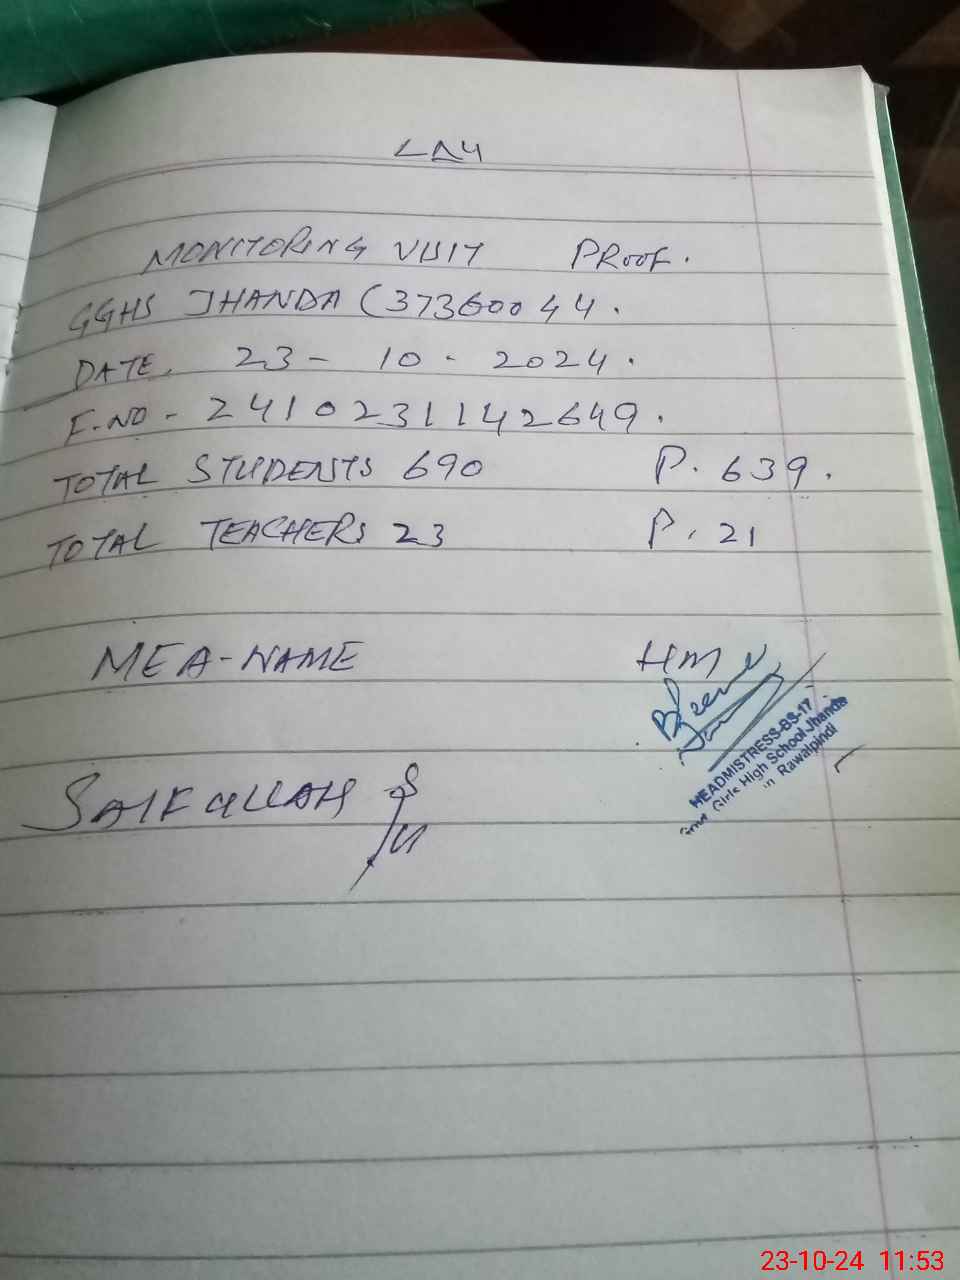 LAY
MONITORING VISIT PROOF.
GGHS JHANDA (37360044.
DATE. 23-10-2024.
F.NO- 2410231142649.
TOTAL STUDENTS 690 P. 639.
TOTAL TEACHERS 23 P. 21
MEA-NAME HM
HEADMISTRESS-BS-17
Girls High School Jhanda
in Rawalpindi
SAIFULLAH
23-10-24 11:53